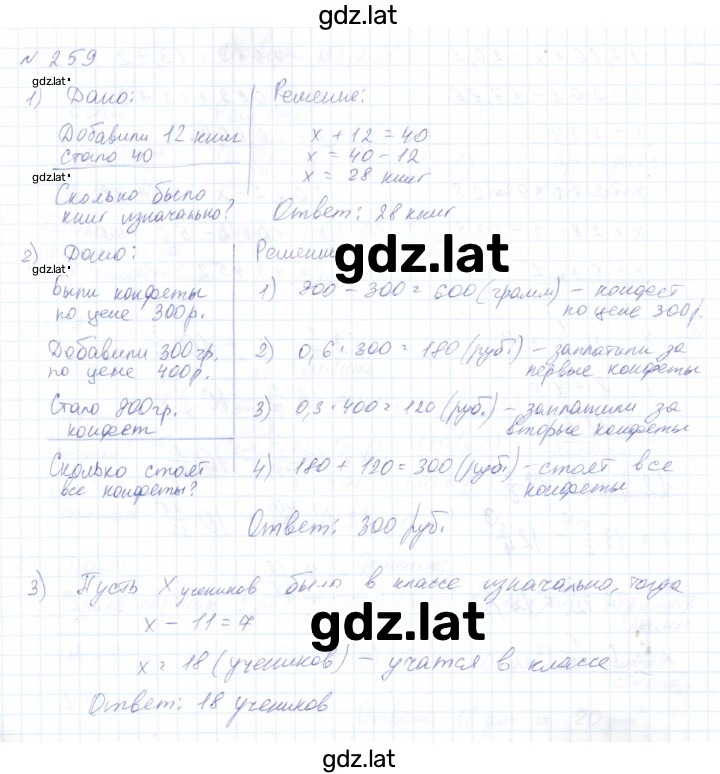 gdz.lat
№ 259
gdz.lat
1) Дано:
Добавили 12 книг
Стало 40
gdz.lat
Сколько было
книг изначально?
Решение:
x + 12 = 40
x = 40 - 12
x = 28 книг
Ответ: 28 книг
gdz.lat
2) Дано:
gdz.lat
Были конфеты
по цене 300р.
Добавили 300гр.
по цене 400р.
Стало 900гр.
конфет
Сколько стоят
все конфеты?
Решение
1) 900 - 300 = 600 (грамм) - конфет
по цене 300р.
2) 0,6 · 300 = 180 (руб.) - заплатили за
первые конфеты
3) 0,3 · 400 = 120 (руб.) - заплатили за
вторые конфеты
4) 180 + 120 = 300 (руб.) - стоят все
конфеты
Ответ: 300 руб.
3) Пусть x учеников было в классе изначально, тогда
x - 11 = 7
gdz.lat
x = 18 (учеников) - учатся в классе
Ответ: 18 учеников
gdz.lat